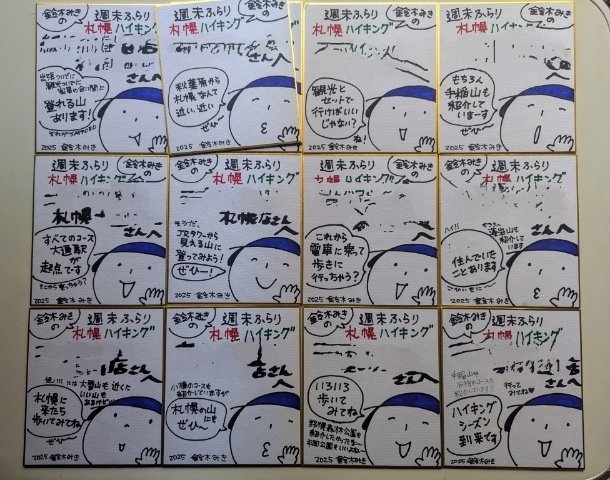 鈴木みきの
週末ふらり
札幌ハイキング
さんへ
登れる山
あります!
2025 鈴木みき
鈴木みきの
週末ふらり
札幌ハイキング
秋葉原から
札幌なんて
近い、近い
ぜひー
2025 鈴木みき
鈴木みきの
週末ふらり
札幌ハイキング
さんへ
観光と
セットで
行けばいい
じゃない?
ね!
2025 鈴木みき
鈴木みきの
週末ふらり
札幌ハイキング
さんへ
もちろん
手稲山も
紹介して
いまーす
ぜひー
2025 鈴木みき
鈴木みきの
週末ふらり
札幌ハイキング
札幌
さんへ
すべてのコース
大通駅
が
起点です
2025 鈴木みき
鈴木みきの
週末ふらり
札幌ハイキング
札幌店さんへ
JRタワーから
見える山に
登ってみよう!
ぜひー!
2025 鈴木みき
鈴木みきの
週末ふらり
札幌ハイキング
さんへ
これから
電車に乗って
歩きに
行っちゃう?
2025 鈴木みき
鈴木みきの
週末ふらり
札幌ハイキング
さんへ
住んでいた
ことあります
2025 鈴木みき
鈴木みきの
週末ふらり
札幌ハイキング
店さんへ
札幌に
来たら
歩いてみてね
ぜひー
2025 鈴木みき
鈴木みきの
週末ふらり
札幌ハイキング
店さんへ
札幌の山
にも
ぜひ〜
2025 鈴木みき
鈴木みきの
週末ふらり
札幌ハイキング
さんへ
いろいろ
歩いて
みてね
野幌森林公園も
2025 鈴木みき
鈴木みきの
週末ふらり
札幌ハイキング
さんへ
ハイキング
シーズン
到来です
2025 鈴木みき